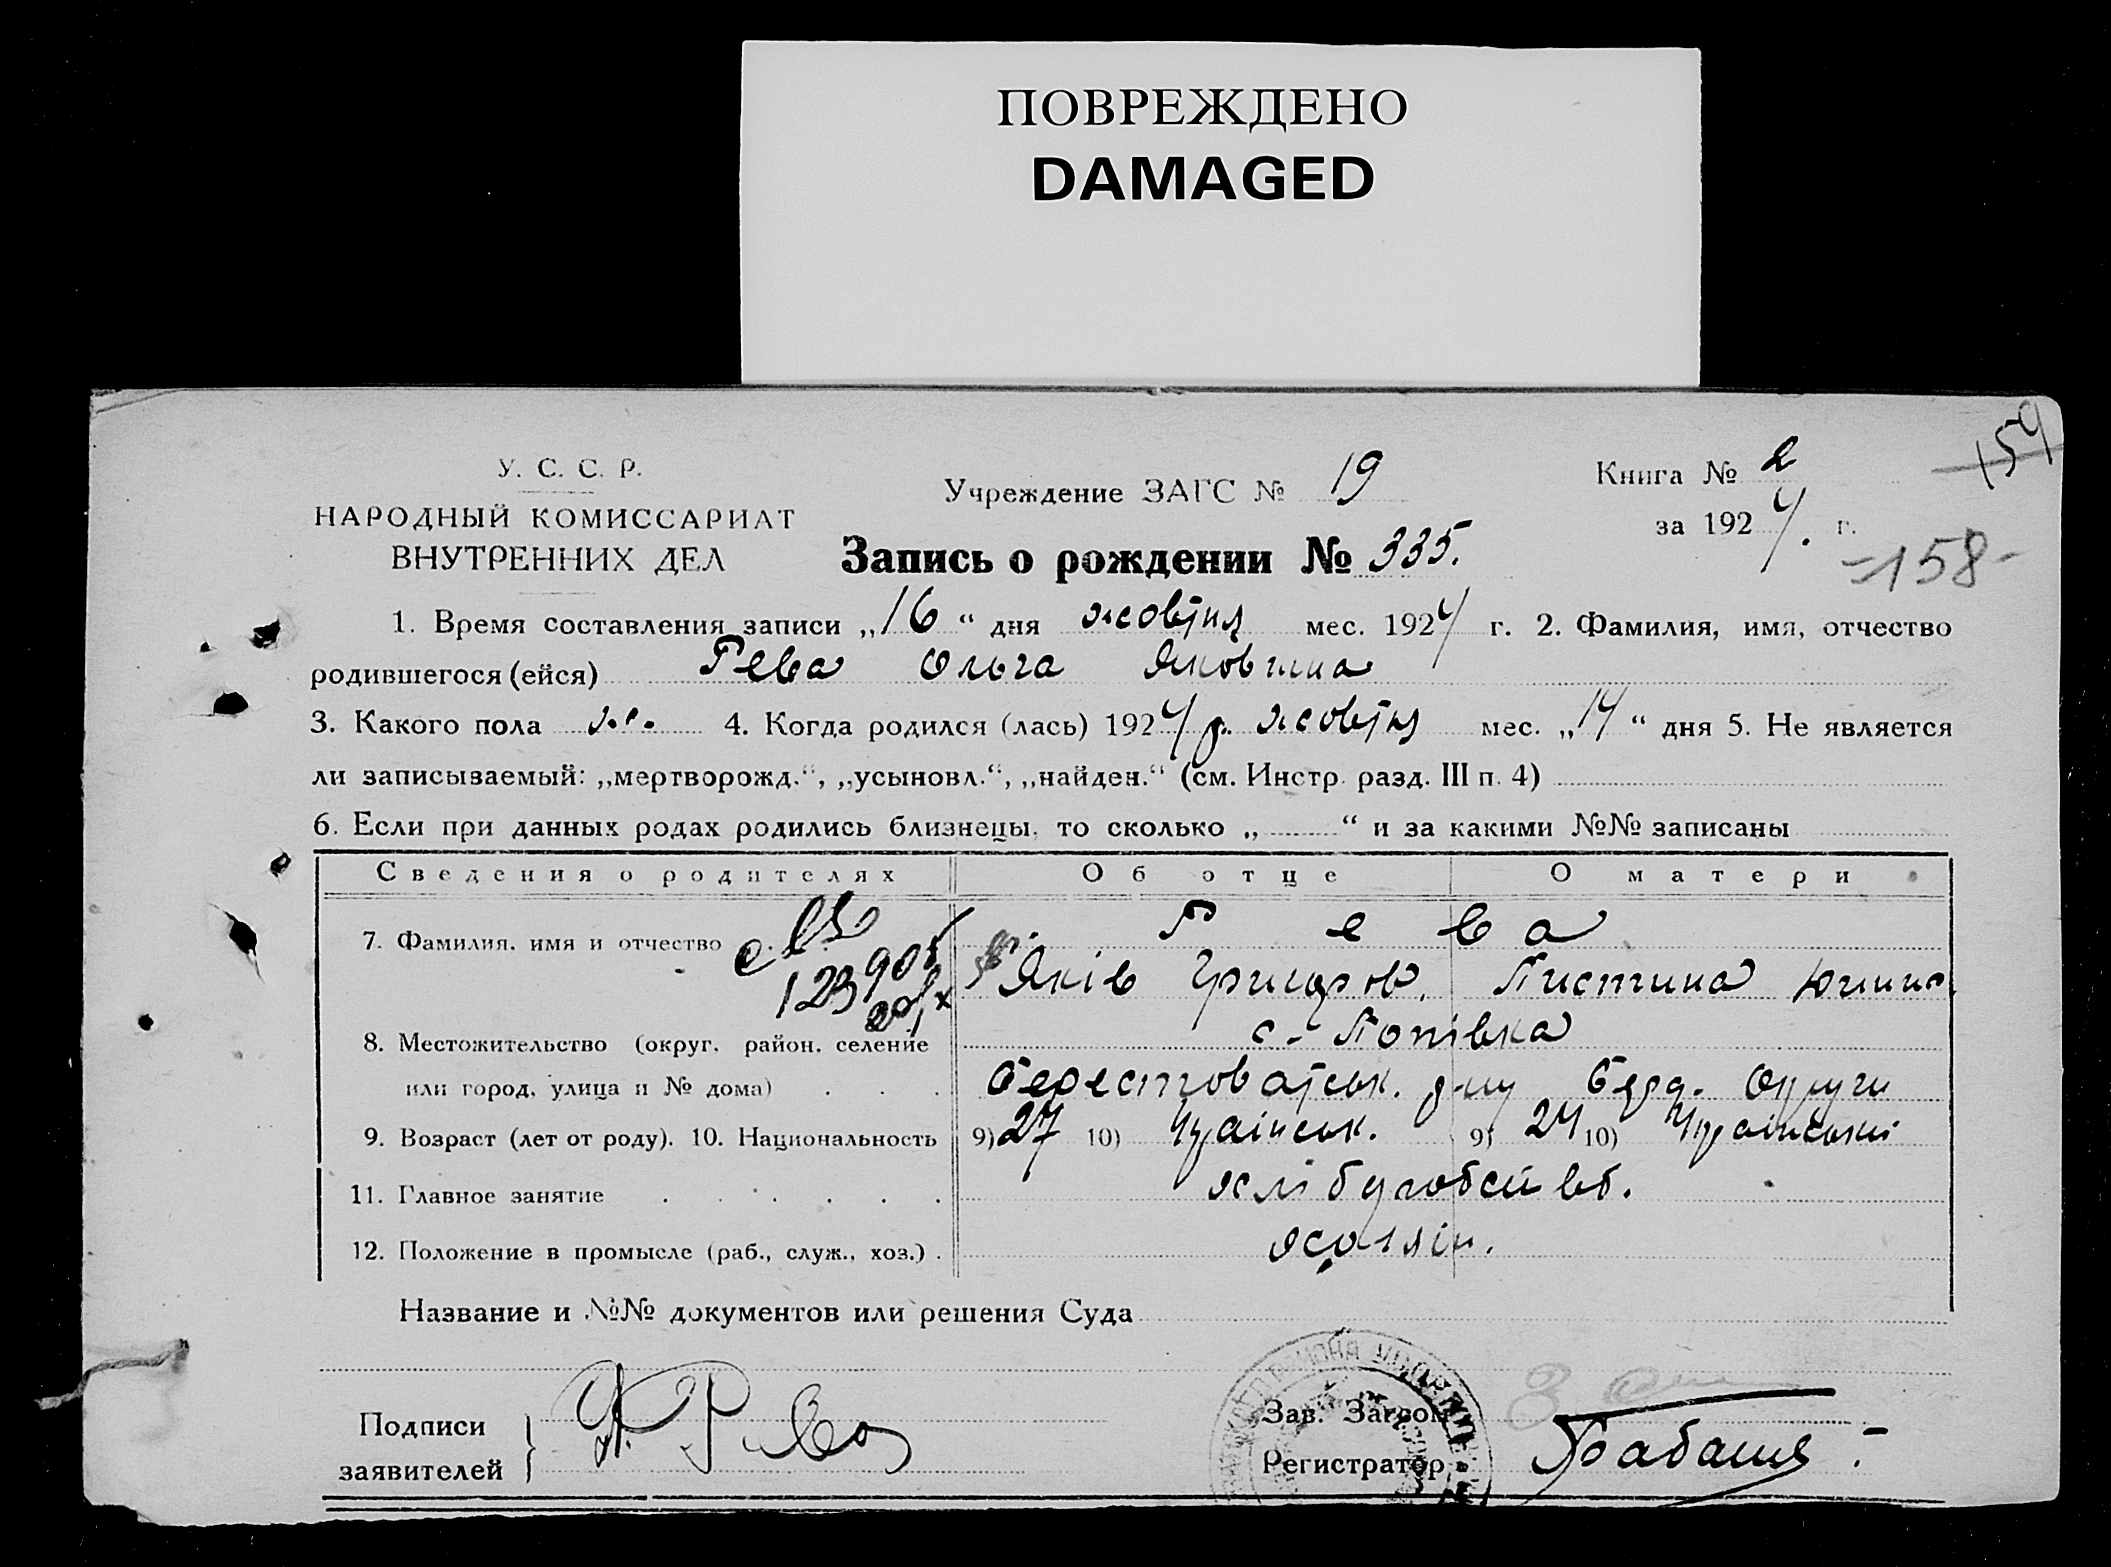 ПОВРЕЖДЕНО
DAMAGED
154
У. С. С. Р.
НАРОДНЫЙ КОМИССАРИАТ
ВНУТРЕННИХ ДЕЛ
Учреждение ЗАГС № 19
Книга № 2
за 1924 г.
Запись о рождении № 335.
=158-
1. Время составления записи „16“ дня жовтня мес. 1924 г. 2. Фамилия, имя, отчество
родившегося (ейся) Рева Ольга Яковлина
3. Какого пола ж. 4. Когда родился (лась) 1924 р. жовтня мес. „14“ дня 5. Не является
ли записываемый: „мертворожд.“, „усыновл.“, „найден.“ (см. Инстр. разд. III п. 4)
6. Если при данных родах родились близнецы, то сколько „ “ и за какими №№ записаны
Сведения о родителях Об отце О матери
7. Фамилия, имя и отчество Рева
Яків Григоров. Пистина
с. Попівка
8. Местожительство (округ, район, селение
или город, улица и № дома) Берестоватськ. р-ну Берд. Округи
9. Возраст (лет от роду). 10. Национальность 9) 27 10) Українськ. 9) 24 10) Українськи
11. Главное занятие хліборобств.
12. Положение в промысле (раб., служ., хоз.)
Название и №№ документов или решения Суда
Подписи
заявителей } Я. Рева
Зав. Загсом
Регистратор